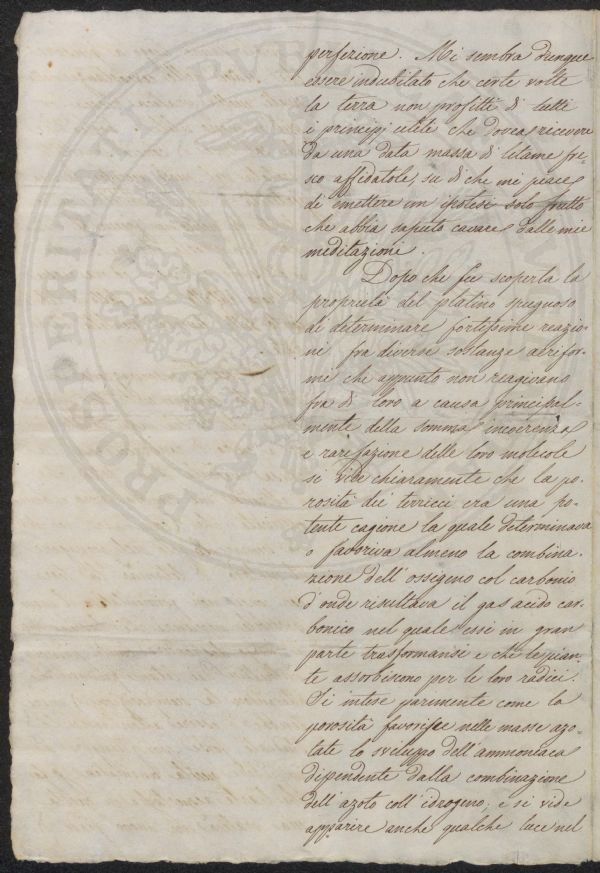 perfezione. Mi sembra dunque
essere indubitato che certe volte
la terra non profitti di tutti
i principj utili che dovea ricevere
da una data massa di letame fre-
sco affidatole, su di che mi piace
di emettere un ipotesi solo frutto
che abbia saputo cavare dalle mie
meditazioni.
Dopo che fu scoperta la
proprietà del platino spugnoso
di determinare fortissime reazio-
ni fra diverse sostanze aerifor-
mi che appunto non reagivano
fra di loro a causa principal-
mente della somma incoerenza
e rarefazione delle loro molecole
si vide chiaramente che la po-
rosità dei terricci era una po-
tente cagione la quale determinava
o favoriva almeno la combina-
zione dell'ossigeno col carbonio
d'onde risultava il gas acido car-
bonico nel quale essi in gran
parte trasformansi e che le pian-
te assorbiscono per le loro radici.
Si intese parimente come la
porosità favorisce nelle masse azo-
tate lo sviluppo dell'ammoniaca
dipendente dalla combinazione
dell'azoto coll'idrogeno; e si vide
apparire anche qualche luce nel
PROSPERITATI PVB